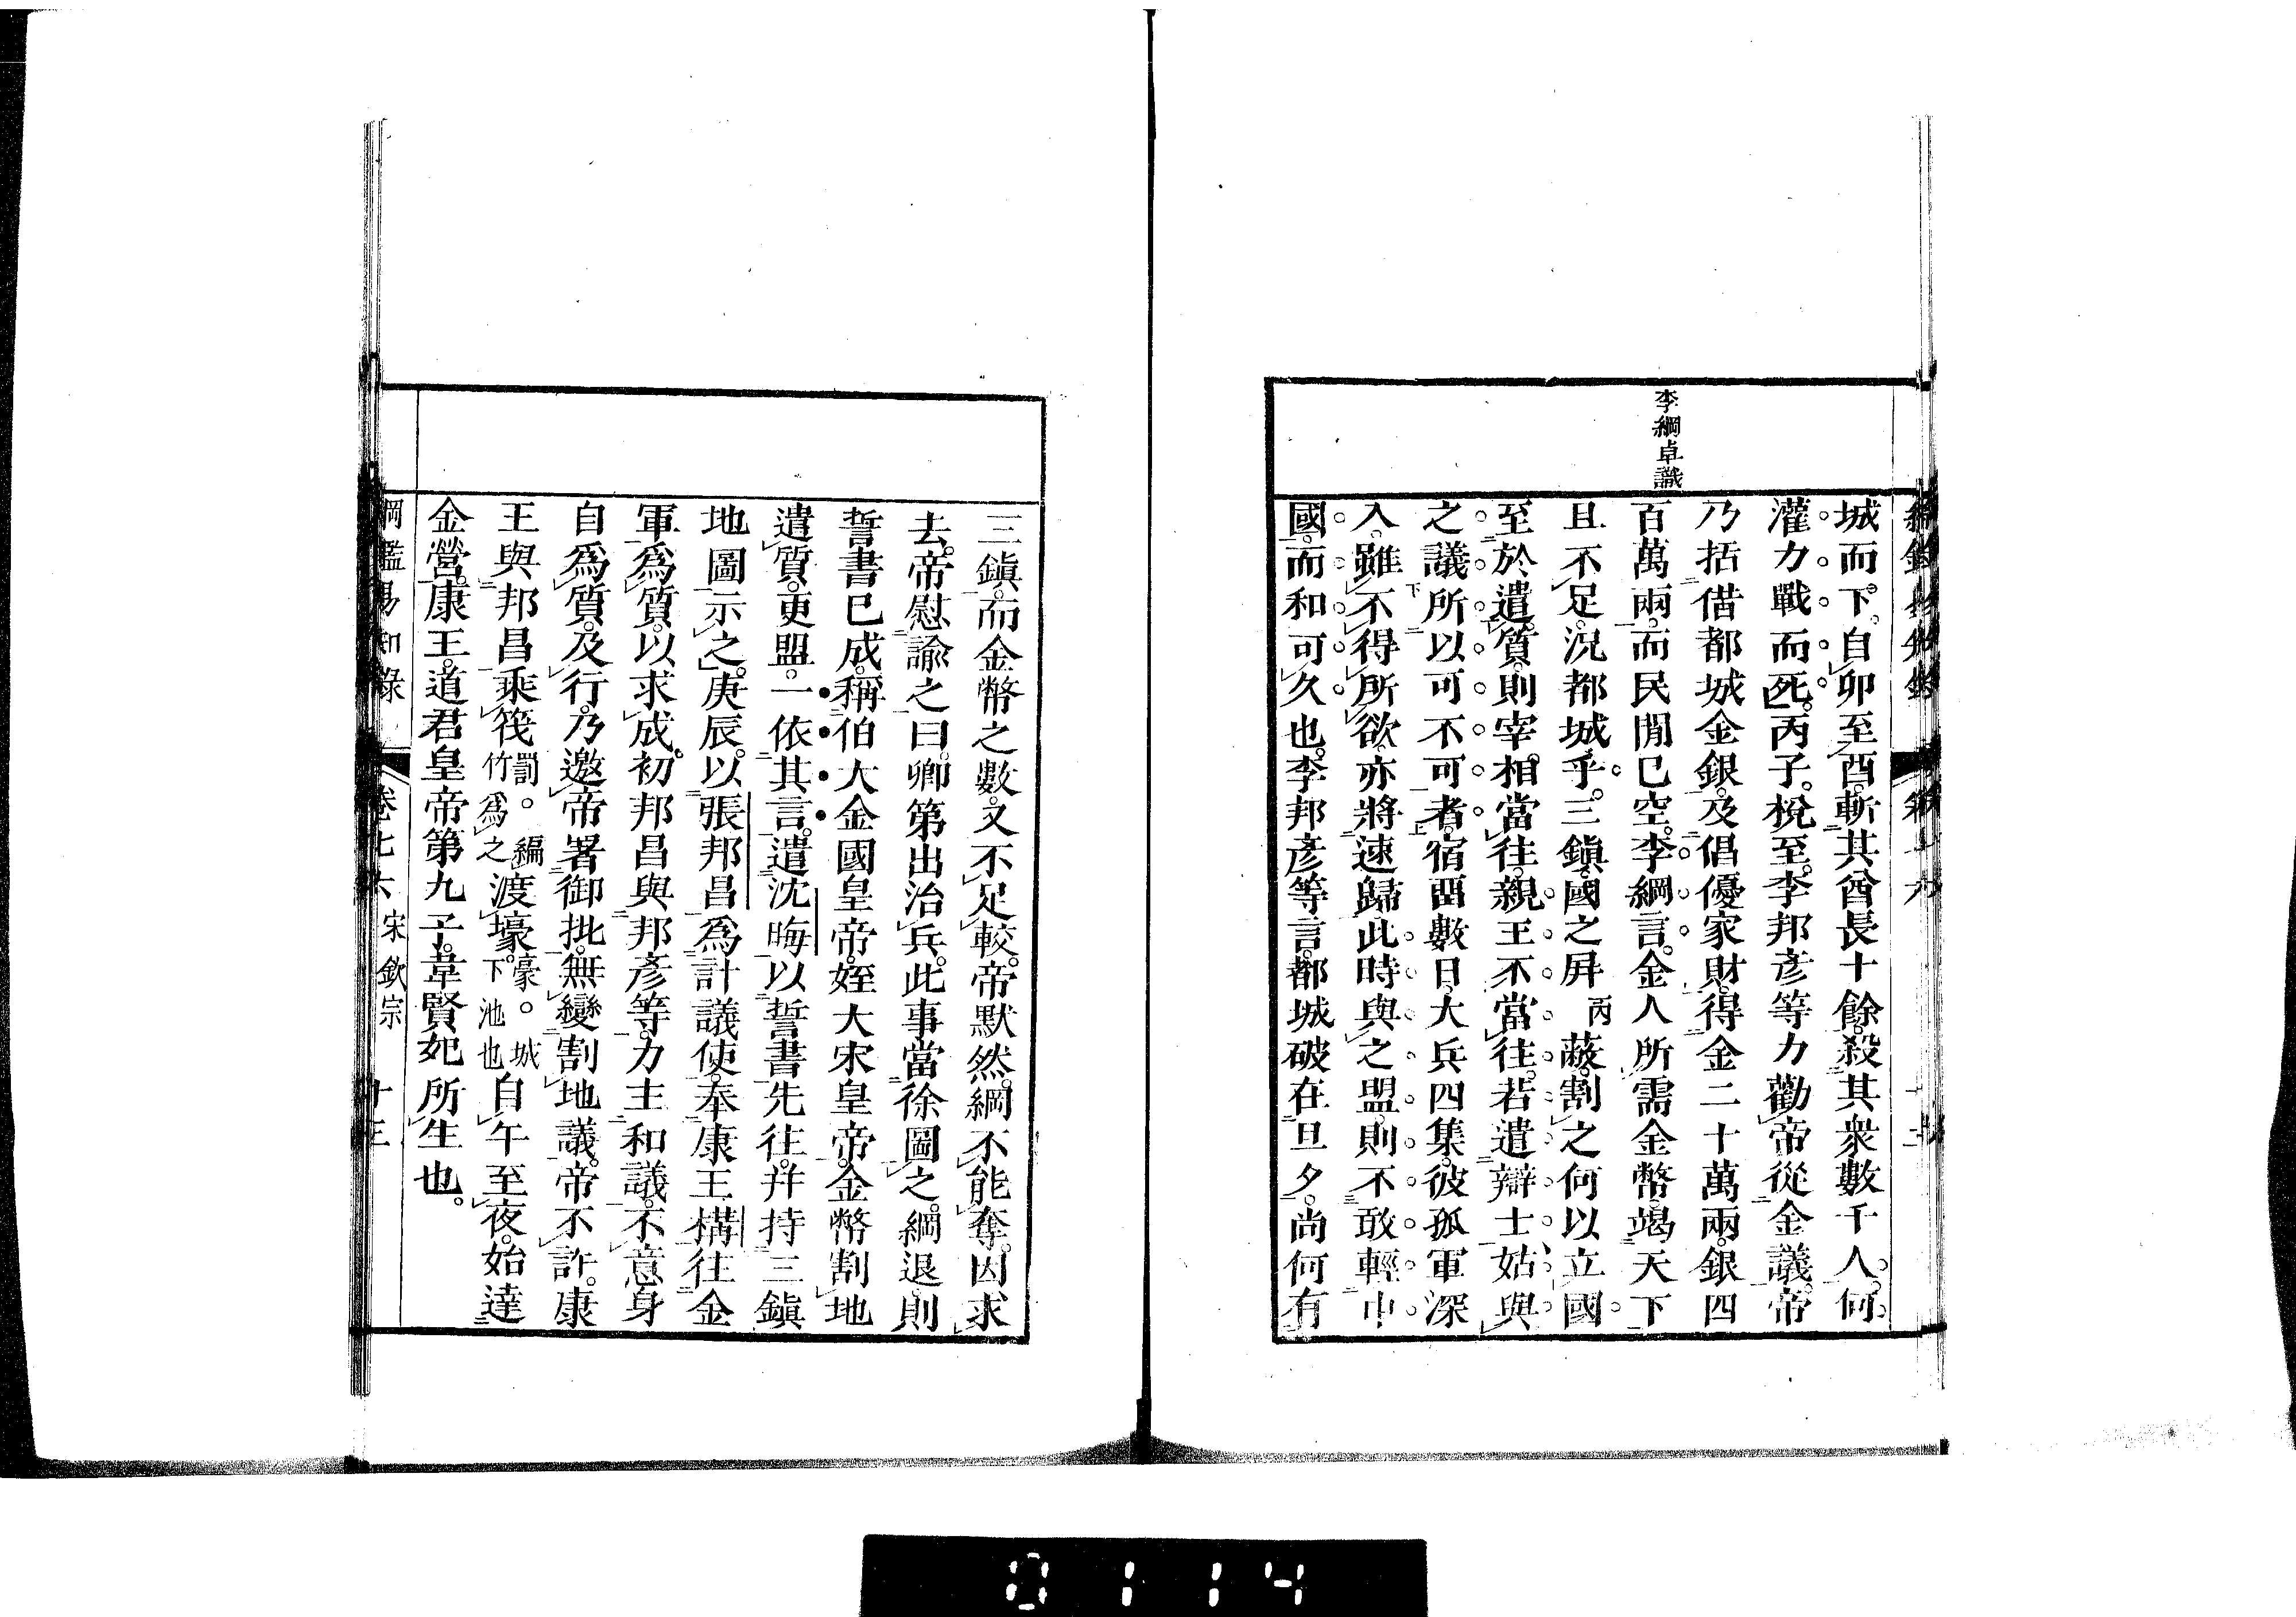 李綱卓識
城而下。自卯至酉。斬其酋長十餘。殺其衆數千人。何
灌力戰而死。丙子。梲至。李邦彥等力勸帝從金議。帝
乃括借都城金銀。及倡優家財。得金二十萬兩。銀四
百萬兩。而民閒已空。李綱言。金人所需金幣。竭天下
且不足。況都城乎。三鎭。國之屏丙蔽。割之何以立國
至於遣質。則宰相當往。親王不當往。若遣辯士姑與
之議所以可不可者。宿畱數日。大兵四集。彼孤軍深
入。雖不得所欲。亦將速歸。此時與之盟。則不敢輕中
國。而和可久也。李邦彥等言。都城破在旦夕。尚何有
三鎭。而金幣之數。又不足較。帝默然。綱不能奪。因求
去。帝慰諭之曰。卿第出治兵。此事當徐圖之。綱退。則
誓書已成。稱伯大金國皇帝。姪大宋皇帝。金幣割地
遣質。更盟。一依其言。遣沈晦以誓書先往。幷持三鎭
地圖示之。庚辰。以張邦昌爲計議使。奉康王構往金
軍爲質。以求成。初邦昌與邦彥等。力主和議。不意身
自爲質。及行。乃邀帝署御批。無變割地議。帝不許。康
王與邦昌乘筏罰。編竹爲之渡壕。豪。城下池也自午至夜。始達
金營。康王。道君皇帝第九子。韋賢妃所生也。
綱鑑易知錄 卷七六 宋欽宗 十三
0114